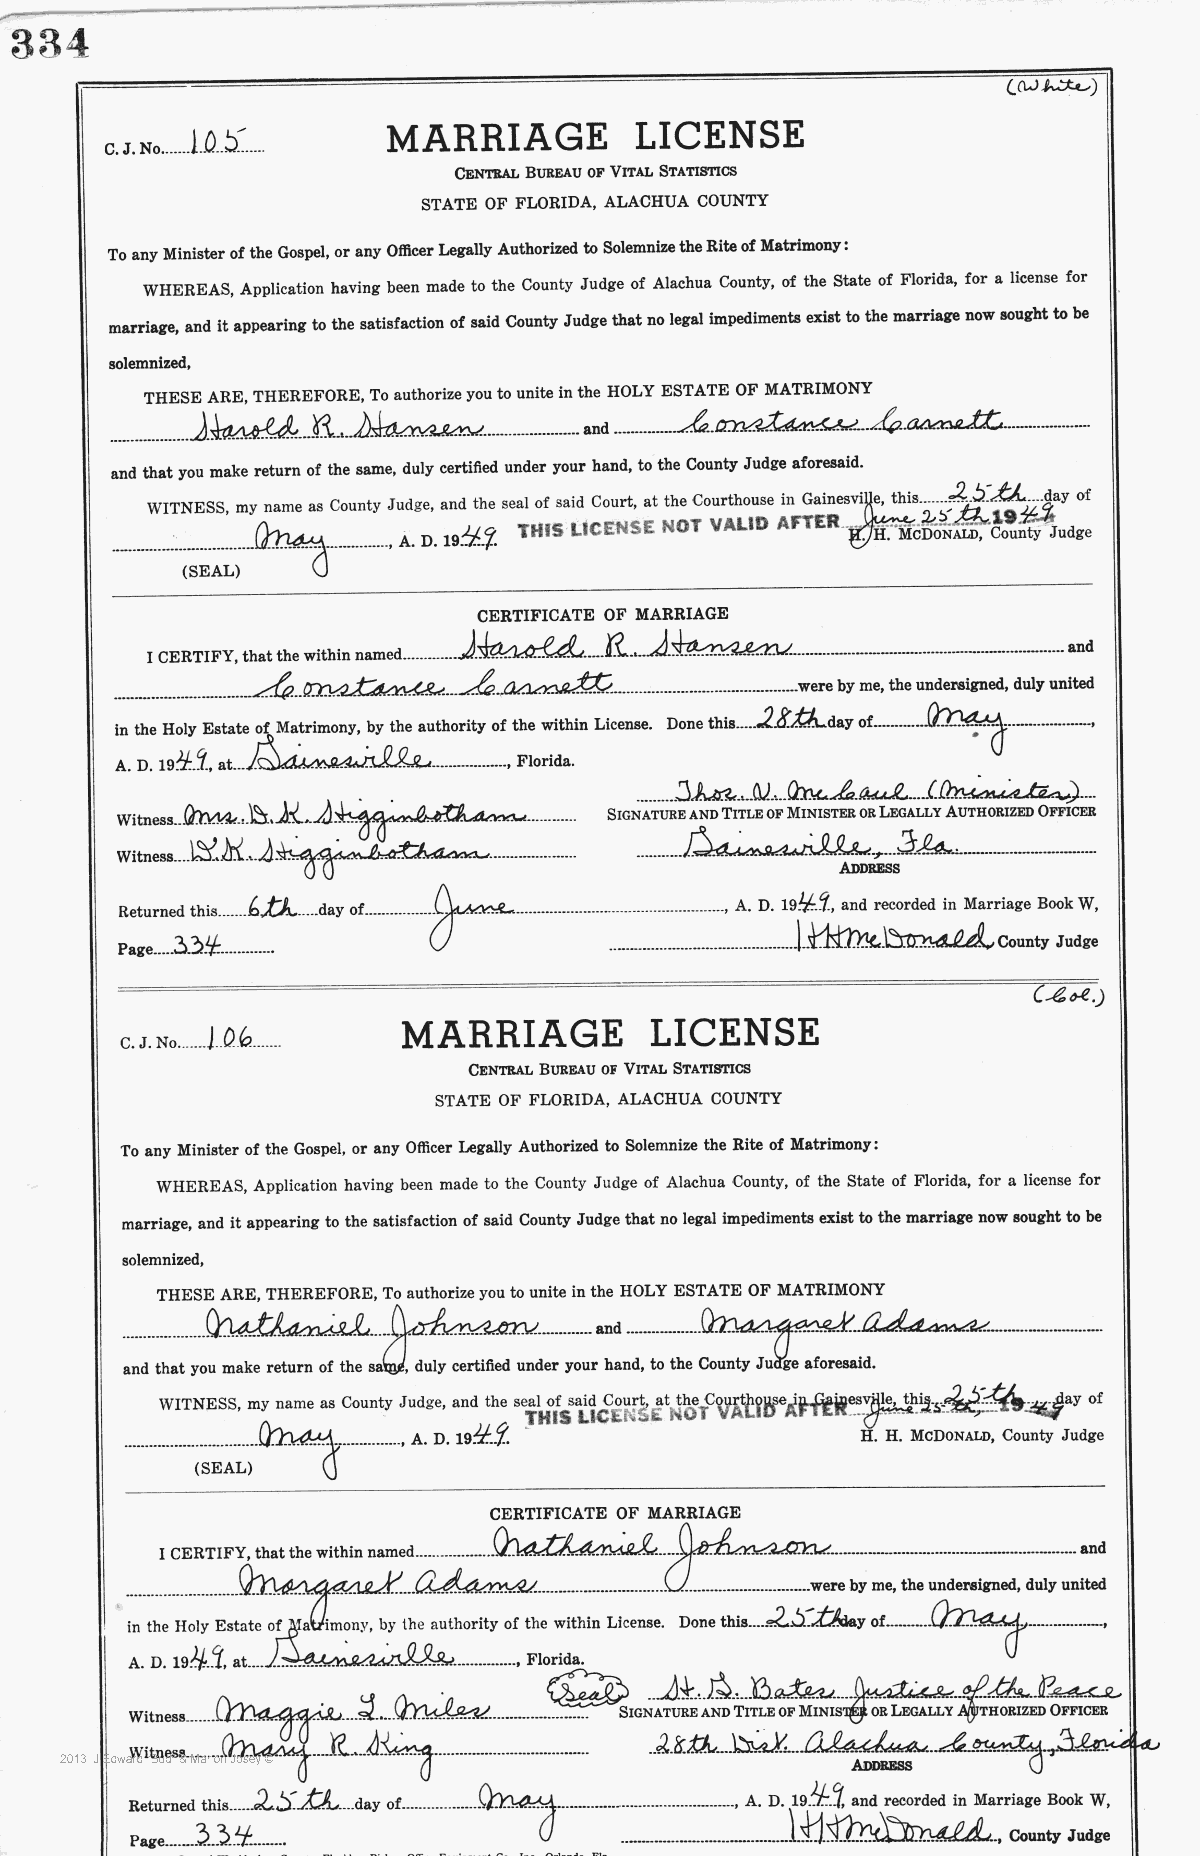 334
(White)
C. J. No. 105
MARRIAGE LICENSE
CENTRAL BUREAU OF VITAL STATISTICS
STATE OF FLORIDA, ALACHUA COUNTY
To any Minister of the Gospel, or any Officer Legally Authorized to Solemnize the Rite of Matrimony:
WHEREAS, Application having been made to the County Judge of Alachua County, of the State of Florida, for a license for
marriage, and it appearing to the satisfaction of said County Judge that no legal impediments exist to the marriage now sought to be
solemnized,
THESE ARE, THEREFORE, To authorize you to unite in the HOLY ESTATE OF MATRIMONY
Harold R. Hansen and Constance Carnett
and that you make return of the same, duly certified under your hand, to the County Judge aforesaid.
WITNESS, my name as County Judge, and the seal of said Court, at the Courthouse in Gainesville, this 25th day of
May, A. D. 1949. THIS LICENSE NOT VALID AFTER June 25th 1949
H. H. McDONALD, County Judge
(SEAL)
CERTIFICATE OF MARRIAGE
I CERTIFY, that the within named Harold R. Hansen and
Constance Carnett were by me, the undersigned, duly united
in the Holy Estate of Matrimony, by the authority of the within License. Done this 28th day of May,
A. D. 1949, at Gainesville, Florida.
Thos. V. McCaul (Minister)
Witness Mrs. D. K. Higginbotham SIGNATURE AND TITLE OF MINISTER OR LEGALLY AUTHORIZED OFFICER
Witness D. K. Higginbotham Gainesville, Fla.
ADDRESS
Returned this 6th day of June, A. D. 1949, and recorded in Marriage Book W,
Page 334 HHMcDonald, County Judge
(Col.)
C. J. No. 106
MARRIAGE LICENSE
CENTRAL BUREAU OF VITAL STATISTICS
STATE OF FLORIDA, ALACHUA COUNTY
To any Minister of the Gospel, or any Officer Legally Authorized to Solemnize the Rite of Matrimony:
WHEREAS, Application having been made to the County Judge of Alachua County, of the State of Florida, for a license for
marriage, and it appearing to the satisfaction of said County Judge that no legal impediments exist to the marriage now sought to be
solemnized,
THESE ARE, THEREFORE, To authorize you to unite in the HOLY ESTATE OF MATRIMONY
Nathaniel Johnson and Margaret Adams
and that you make return of the same, duly certified under your hand, to the County Judge aforesaid.
WITNESS, my name as County Judge, and the seal of said Court, at the Courthouse in Gainesville, this 25th day of
THIS LICENSE NOT VALID AFTER June 25th, 1949
May, A. D. 1949. H. H. McDONALD, County Judge
(SEAL)
CERTIFICATE OF MARRIAGE
I CERTIFY, that the within named Nathaniel Johnson and
Margaret Adams were by me, the undersigned, duly united
in the Holy Estate of Matrimony, by the authority of the within License. Done this 25th day of May,
A. D. 1949, at Gainesville, Florida.
Seal H. G. Bates Justice of the Peace
Witness Maggie L. Miles SIGNATURE AND TITLE OF MINISTER OR LEGALLY AUTHORIZED OFFICER
Witness Mary R. King 28th Dist. Alachua County, Florida
ADDRESS
Returned this 25th day of May, A. D. 1949, and recorded in Marriage Book W,
Page 334 HHMcDonald, County Judge